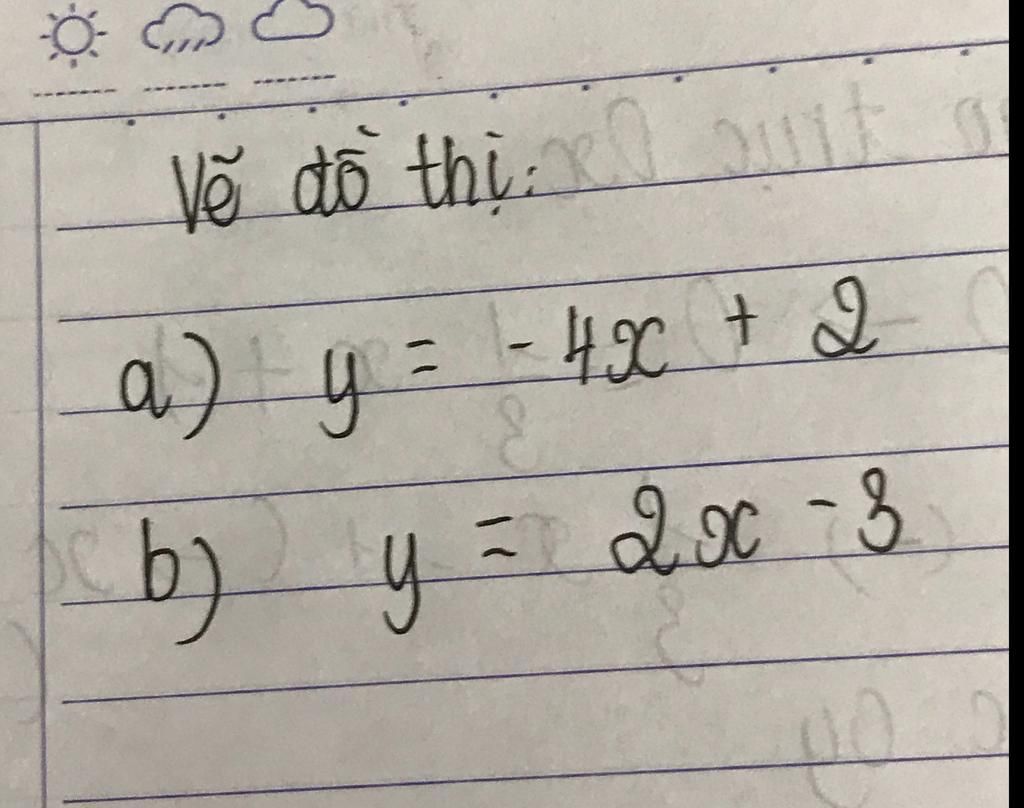 Vẽ đồ thị:
a) y = - 4x + 2
b) y = 2x - 3